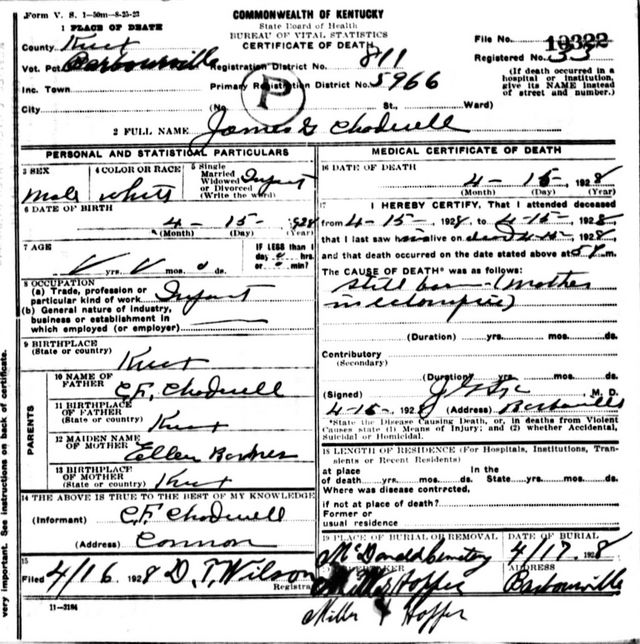 Form V. S. 1-50m-8-25-23
COMMONWEALTH OF KENTUCKY
State Board of Health
BUREAU OF VITAL STATISTICS
CERTIFICATE OF DEATH
1 PLACE OF DEATH
County Knox
File No. 10322
Vot. Pct. Barbourville
Registration District No. 811
Registered No. 33
Inc. Town
Primary Registration District No. 5966
(If death occurred in a hospital or institution, give its NAME instead of street and number.)
City (No. St., Ward)
P
2 FULL NAME James G Chadwell
PERSONAL AND STATISTICAL PARTICULARS
3 SEX Male
4 COLOR OR RACE White
5 Single Married Widowed or Divorced (Write the word) Infant
6 DATE OF BIRTH
4 - 15 - 1928
(Month) (Day) (Year)
7 AGE
yrs. mos.
IF LESS than 1 day 0 hrs. or 0 min?
8 OCCUPATION
(a) Trade, profession or particular kind of work Infant
(b) General nature of industry, business or establishment in which employed (or employer)
9 BIRTHPLACE
(State or country) Knox
PARENTS
10 NAME OF FATHER C.F. Chadwell
11 BIRTHPLACE OF FATHER (State or country) Knox
12 MAIDEN NAME OF MOTHER Ellen
13 BIRTHPLACE OF MOTHER (State or country) Knox
14 THE ABOVE IS TRUE TO THE BEST OF MY KNOWLEDGE
(Informant) C.F. Chadwell
(Address) Cannon
15
Filed 4/16 1928 D.T. Wilson
Registrar
11-3184
MEDICAL CERTIFICATE OF DEATH
16 DATE OF DEATH
4 - 15, 1928
(Month) (Day) (Year)
17 I HEREBY CERTIFY, That I attended deceased
from 4-15-, 1928, to 4-15-, 1928
that I last saw him alive on 1928,
and that death occurred on the date stated above at 5 m.
The CAUSE OF DEATH* was as follows:
Still born - (mother
in eclampsia)
(Duration) yrs. mos. ds.
Contributory
(Secondary)
(Duration) yrs. mos. ds.
(Signed) M. D.
4-15-, 1928 (Address) Barbourville
*State the Disease Causing Death, or, in deaths from Violent Causes state (1) Means of Injury; and (2) whether Accidental, Suicidal or Homicidal.
18 LENGTH OF RESIDENCE (For Hospitals, Institutions, Transients or Recent Residents)
at place of death yrs. mos. ds. In the State yrs. mos. ds.
Where was disease contracted,
if not at place of death?
Former or usual residence
19 PLACE OF BURIAL OR REMOVAL McDonald Cemetery
DATE OF BURIAL 4/17 1928
UNDERTAKER
ADDRESS Barbourville
Miller & Hopper
very important. See instructions on back of certificate.